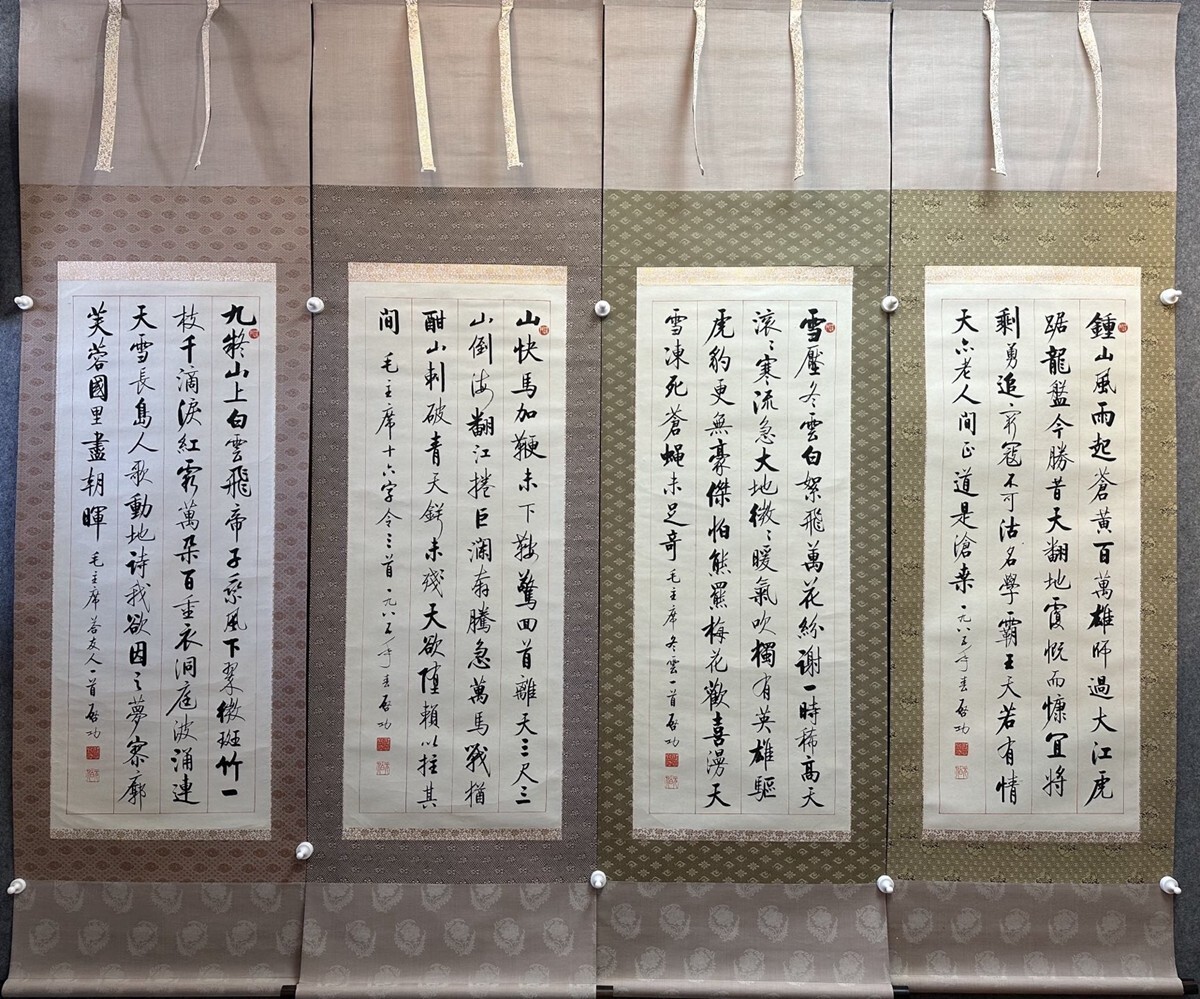 鍾山風雨起蒼黃百萬雄師過大江虎
踞龍盤今勝昔天翻地覆慨而慷宜將
剩勇追窮寇不可沽名學霸王天若有情
天亦老人間正道是滄桑 一九八五年春 啓功
雪壓冬雲白絮飛萬花紛謝一時稀高天
滾〻寒流急大地微〻暖氣吹獨有英雄驅
虎豹更無豪傑怕熊羆梅花歡喜漫天
雪凍死蒼蠅未足奇 毛主席冬雲一首 啓功
山快馬加鞭未下鞍驚回首離天三尺三
山倒海翻江捲巨瀾奔騰急萬馬戰猶
酣山刺破青天鍔未殘天欲墮賴以拄其
間 毛主席十六字令三首 一九八五年春 啓功
九嶷山上白雲飛帝子乘風下翠微斑竹一
枝千滴淚紅霞萬朵百重衣洞庭波涌連
天雪長島人歌動地詩我欲因之夢寥廓
芙蓉國里盡朝暉 毛主席答友人一首 啓功